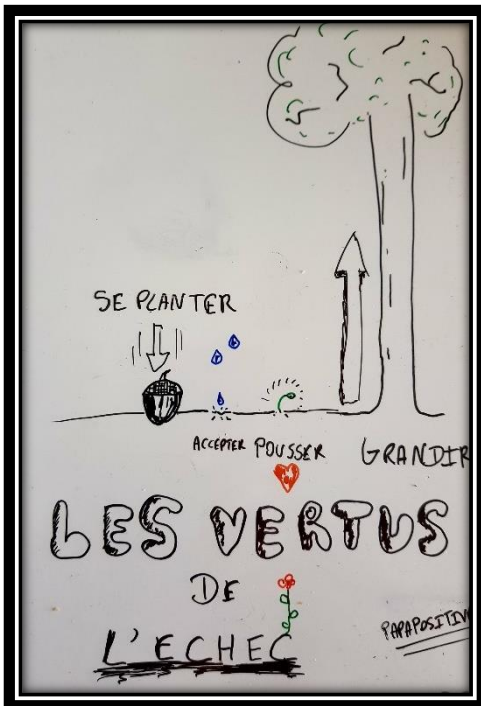 SE PLANTER
ACCEPTER POUSSER GRANDIR
LES VERTUS
DE
L'ECHEC
PAPAPOSITIVE